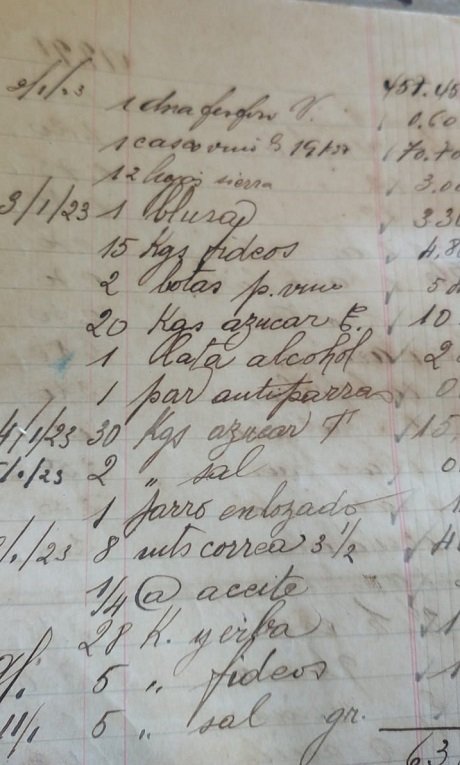 457.45
2/1/23 1 dna fosforo V. 0.60
1 casco vino 70.70
12 hojas sierra 3.00
3/1/23 1 blusa 3.30
15 Kgs fideos 4.80
2 botas p. vino 5
20 Kgs azucar E. 10
1 lata alcohol 2
1 par antiparras 0
4/1/23 30 Kgs azucar T 15.
/23 2 " sal 0
1 jarro enlozado 1
/23 8 mts correa 3 1/2 4
1/4 @ aceite
28 K. yerba 1
5 " fideos 1
11/1 5 " sal gr.
6.3